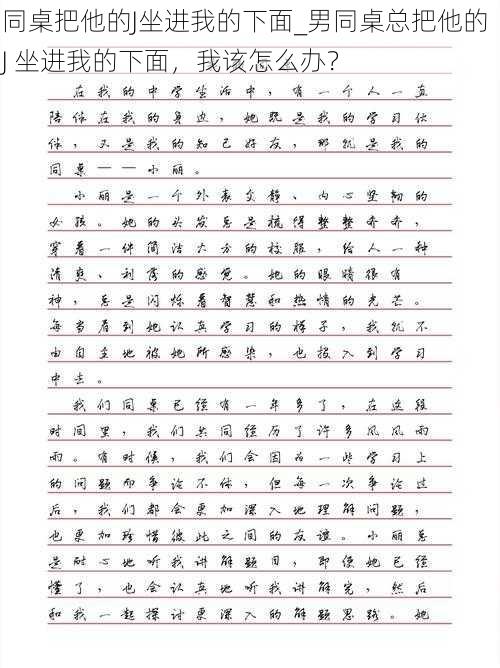 同桌把他的J坐进我的下面_男同桌总把他的
J 坐进我的下面，我该怎么办？
在我的中学生活中，有一个人一直
陪伴在我的身边，她既是我的学习伙
伴，又是我的知己好友，那就是我的
同桌——小丽。
小丽是一个外表文静、内心坚韧的
女孩。她的头发总是梳得整整齐齐，
穿着一件简洁大方的校服，给人一种
清爽、利落的感觉。她的眼睛很有
神，总是闪烁着智慧和热情的光芒。
每当看到她认真学习的样子，我就不
由自主地被她所感染，也投入到学习
中去。
我们同桌已经有一年多了，在这段
时间里，我们共同经历了许多风风雨
雨。有时候，我们会因为一些学习上
的问题而争论不休，但每一次争论过
后，我们都会更加深入地理解问题，
也更加珍惜彼此之间的友谊。小丽总
是耐心地听我讲解题目，即使她已经
懂了，也会认真地听我讲解完，然后
和我一起探讨更深入的解题思路。她